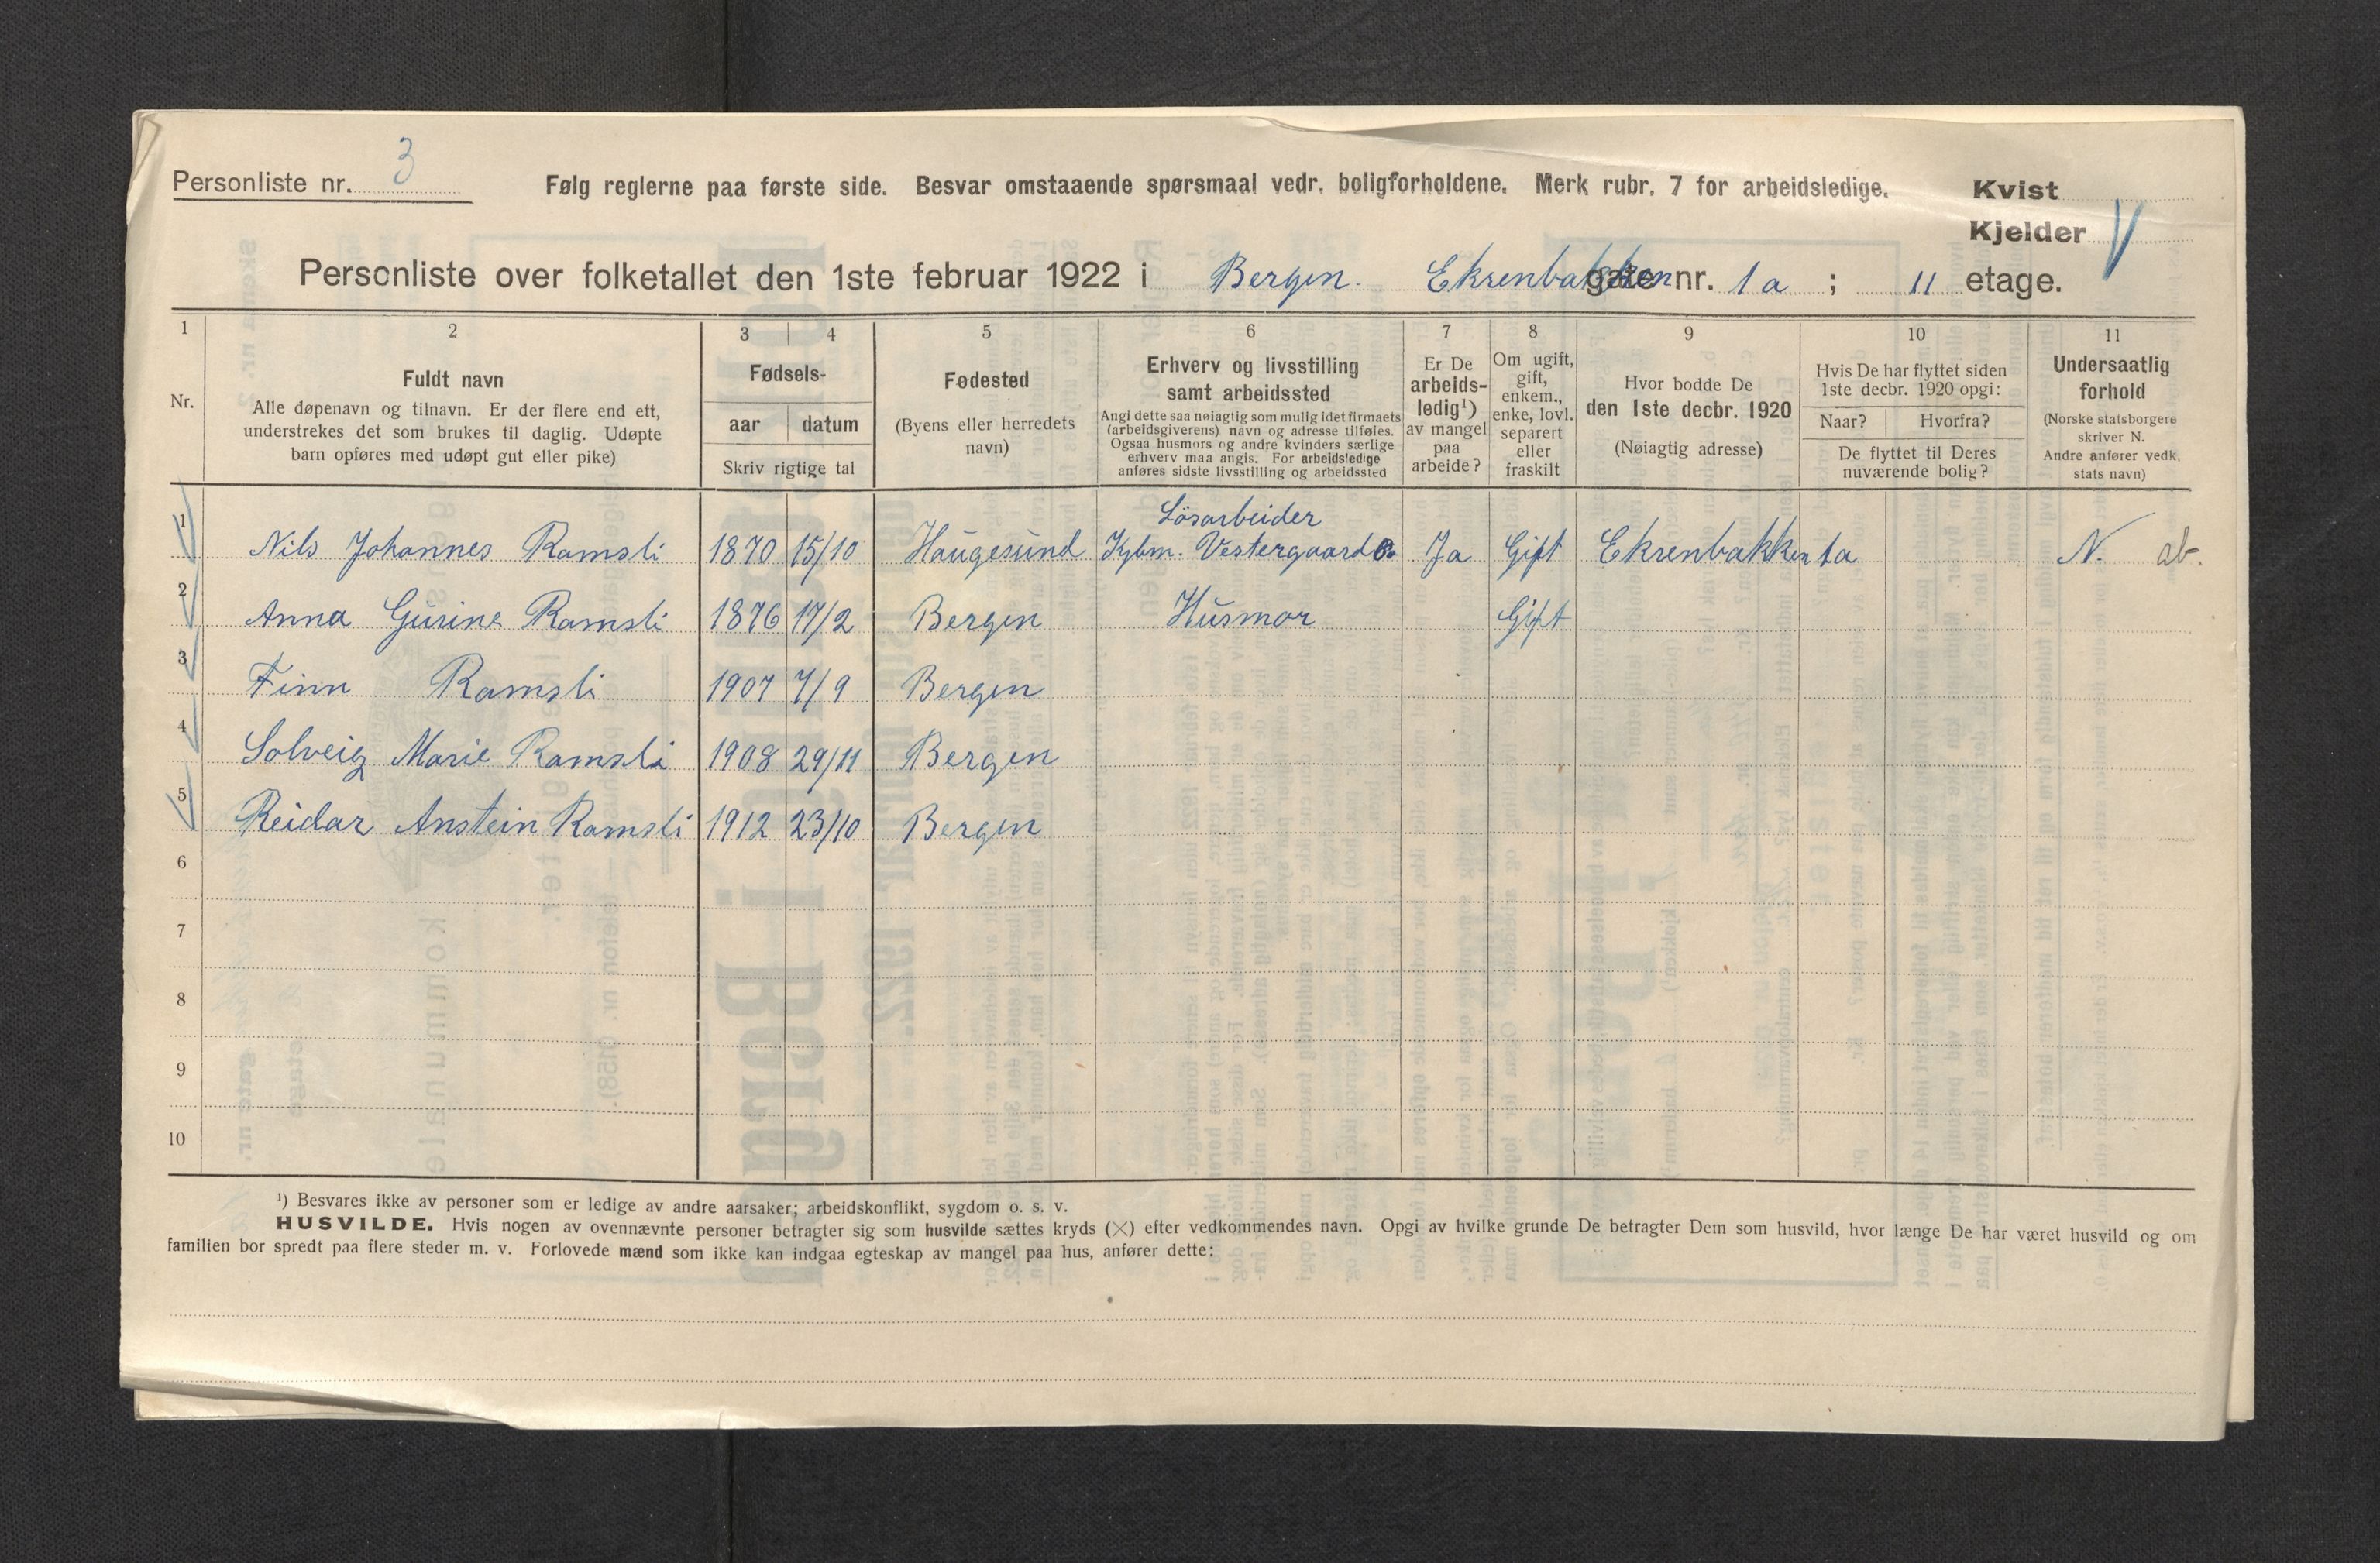 Personliste nr. 3
Følg reglerne paa første side. Besvar omstaaende spørsmaal vedr. boligforholdene. Merk rubr. 7 for arbeidsledige.
Kvist
Kjelder
Personliste over folketallet den 1ste februar 1922 i Bergen. Ekrenbakken gate nr. 1a ; 11 etage.
1 2 3 4 5 6 7 8 9 10 11
Nr.
Fuldt navn
Alle døpenavn og tilnavn. Er der flere end ett,
understrekes det som brukes til daglig. Udøpte
barn opføres med udøpt gut eller pike)
Fødsels-
aar datum
Skriv rigtige tal
Fødested
(Byens eller herredets
navn)
Erhverv og livsstilling
samt arbeidssted
Angi dette saa nøiagtig som mulig idet firmaets
(arbeidsgiverens) navn og adresse tilføies.
Ogsaa husmors og andre kvinders særlige
erhverv maa angis. For arbeidsledige
anføres sidste livsstilling og arbeidssted
Er De
arbeids-
ledig¹)
av mangel
paa
arbeide?
Om ugift,
gift,
enkem.,
enke, lovl.
separert
eller
fraskilt
Hvor bodde De
den 1ste decbr. 1920
(Nøiagtig adresse)
Hvis De har flyttet siden
1ste decbr. 1920 opgi:
Naar? Hvorfra?
De flyttet til Deres
nuværende bolig?
Undersaatlig
forhold
(Norske statsborgere
skriver N.
Andre anfører vedk.
stats navn)
Lösarbeider
1 Nils Johannes Ramsli 1870 15/10 Haugesund Kjbm. Vestergaard Ja Gift Ekrenbakken 1a N. ab.
2 Anna Gurine Ramsli 1876 17/2 Bergen Husmor Gift
3 Finn Ramsli 1907 7/9 Bergen
4 Solveig Marie Ramsli 1908 29/11 Bergen
5 Reidar Anstein Ramsli 1912 23/10 Bergen
6
7
8
9
10
¹) Besvares ikke av personer som er ledige av andre aarsaker; arbeidskonflikt, sygdom o. s. v.
HUSVILDE. Hvis nogen av ovennævnte personer betragter sig som husvilde sættes kryds (×) efter vedkommendes navn. Opgi av hvilke grunde De betragter Dem som husvild, hvor længe De har været husvild og om
familien bor spredt paa flere steder m. v. Forlovede mænd som ikke kan indgaa egteskap av mangel paa hus, anfører dette: